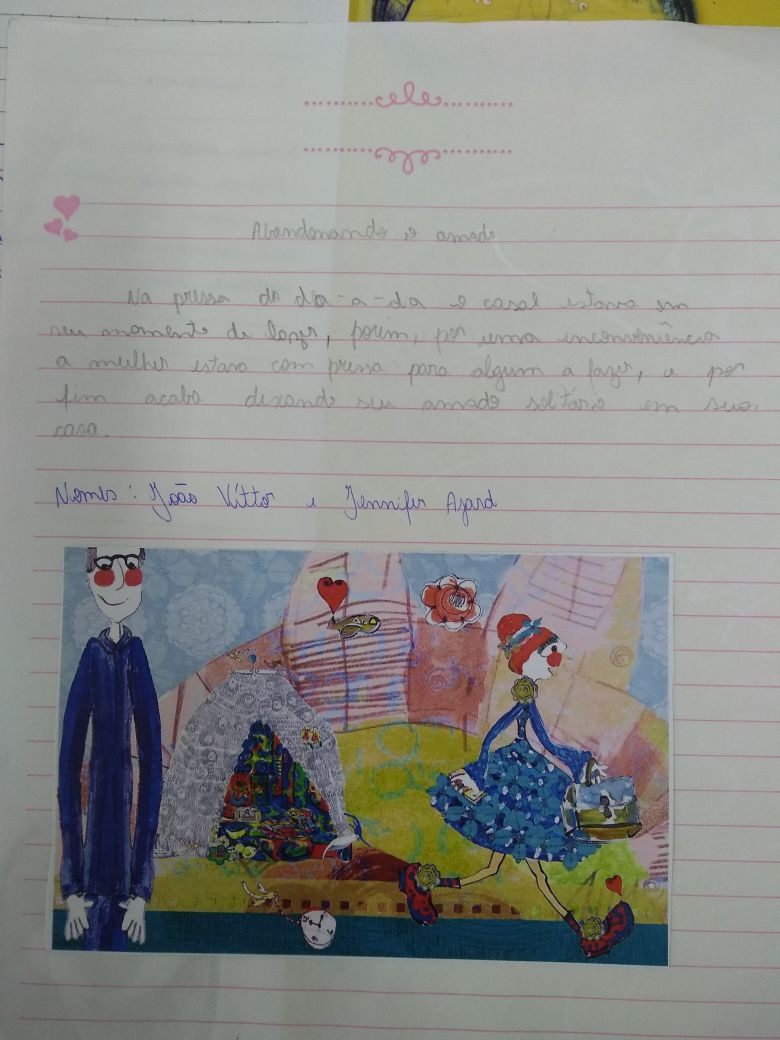 Abandonando o amado
Na pressa do dia-a-dia o casal estava em
seu momento de lazer, porém, por uma inconveniência
a mulher estava com pressa para algum a fazer, e por
fim acaba dexando seu amado soltário em sua
casa.
Nomes: João Víttor e Jennifer Azard